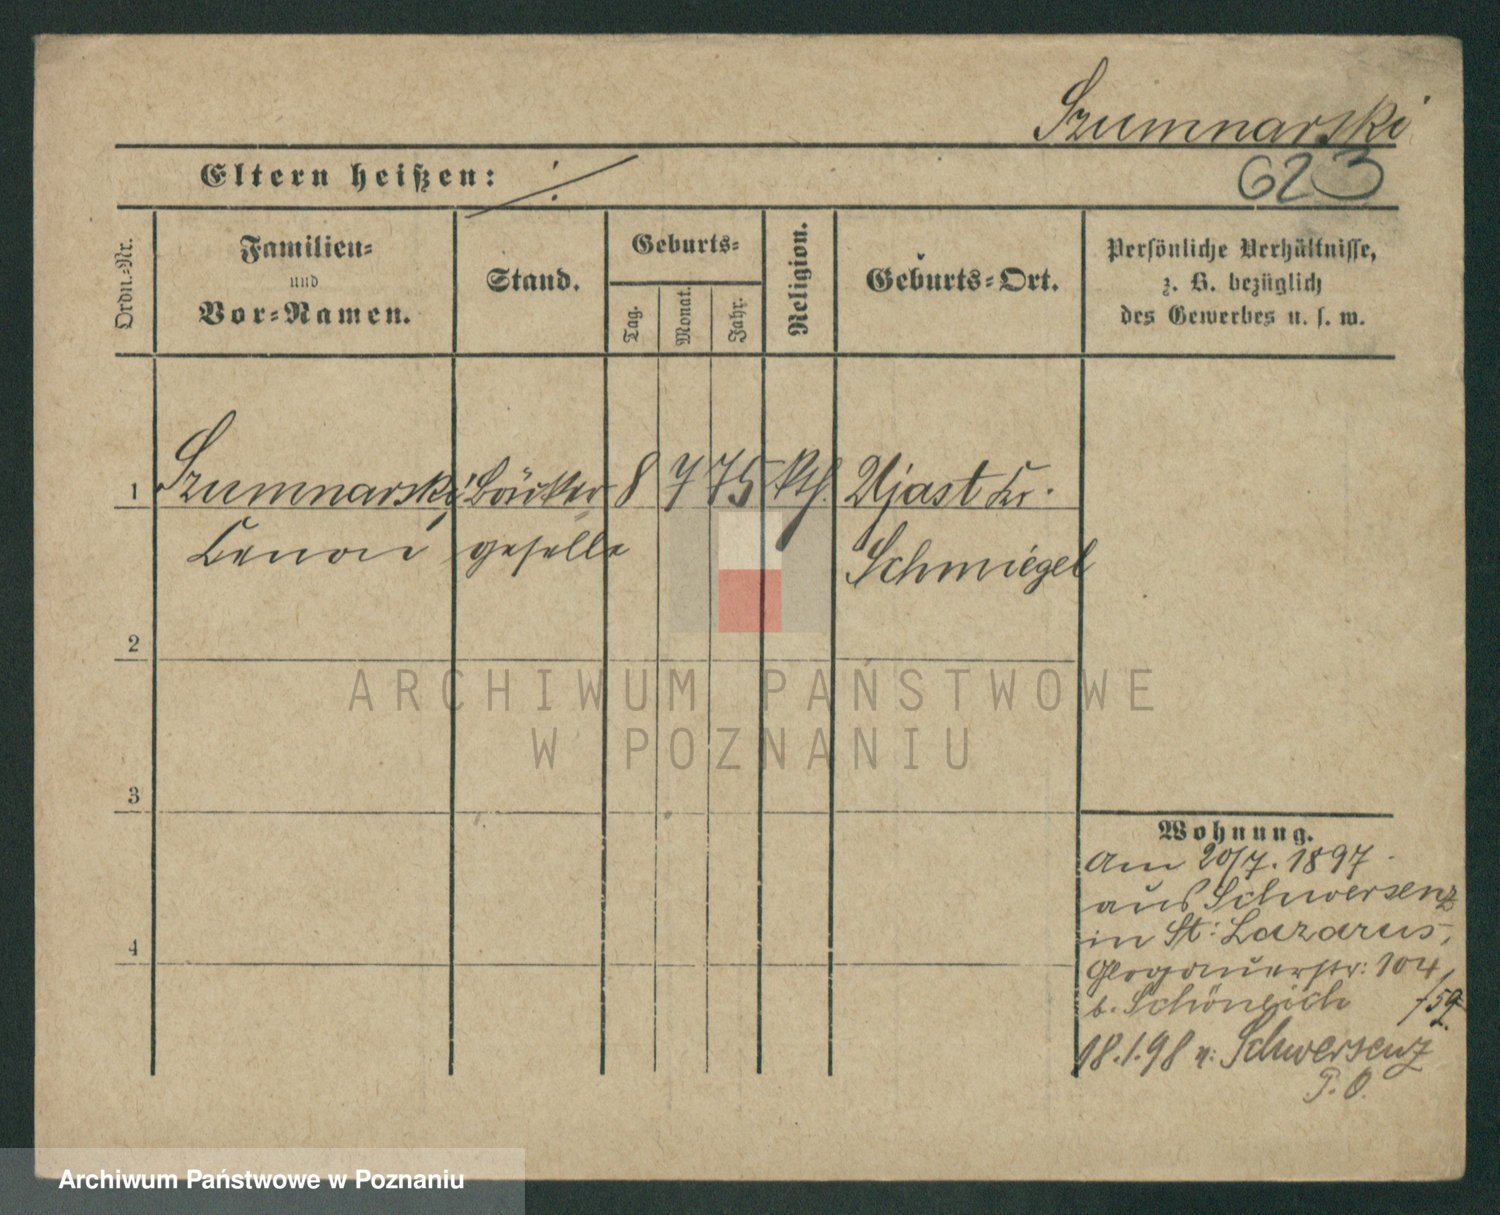 Szumnarski
623
Eltern heißen: ·/.
Ordn.-Nr.
Familien-
und
Vor-Namen.
Stand.
Geburts-
Tag.
Monat.
Jahr.
Religion.
Geburts-Ort.
Persönliche Verhältnisse,
z. B. bezüglich
des Gewerbes u. s. w.
1 Szumnarski Bäcker 8 7 75 kth. Ujast Kr.
Zenon geselle Schmiegel
2
3
4
Wohnung.
Am 20/7. 1897
aus Schwersenz
in St: Lazarus,
Glogauerstr: 104
b. Schöneich /59
18.1.98 n: Schwersenz
P. O.
ARCHIWUM PAŃSTWOWE
W POZNANIU
Archiwum Państwowe w Poznaniu